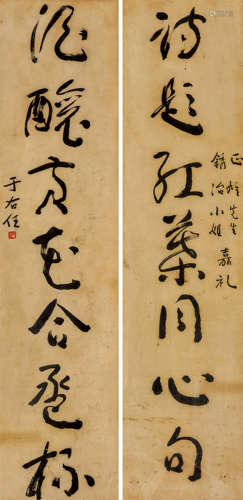 詩題紅葉同心句
正雄先生
治小姐
嘉礼
酒釀黃花合卺杯
于右任